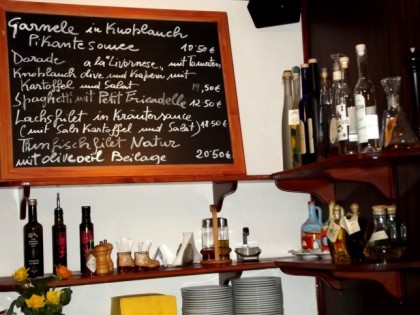 Garnele in Knoblauch
Pikantesouce 10'50€
Dorade a la "Livornese", mit Tomaten,
Knoblauch olive und Kapern mit
Kartoffel und Salat 19,50€
Spaghetti mit Petit Fricadelle 12'50€
Lachsfilet in Kräutersauce
(mit Salz Kartoffel und Salat) 18'50€
Thunfischfilet Natur
mit oliveoeil Beilage 20'50€